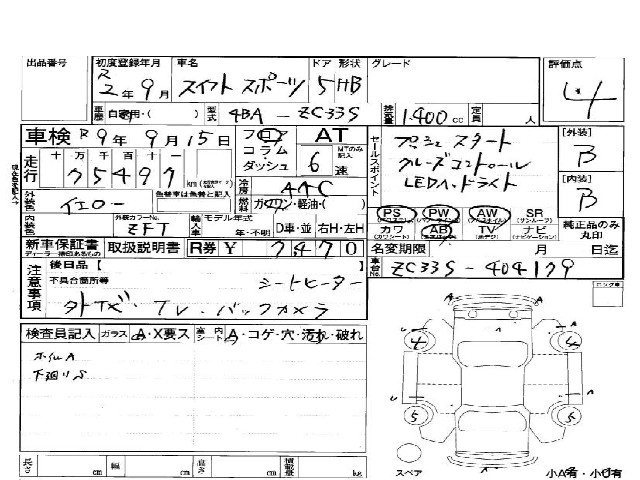 出品番号 初度登録年月 車名 ドア 形状 グレード 評価点
R2年9月 スイフト スポーツ 5 HB 4
車歴 自家用・( ) 型式 4BA-ZC33S 排気量 1,400cc 定員 人
車検 R9年9月15日 フロア AT セールスポイント プッシュスタート [外装]
走行 十万千百十一 コラム・ MTのみ記入 クルーズコントロール B
75497 km ダッシュ 6速 LEDヘッドライト [内装]
色替車は色替と記入 冷房 AAC B
外装色 イエロー 燃料 ガソリン・軽油・( ) PS PW AW SR
内装色 外装カラーNo. ZFT 輸入車 モデル年式 年・不明 D車・並 右H・左H カワ AB TV ナビ 純正品のみ丸印
新車保証書 取扱説明書 R券 ¥ 7470 名変期限 月 日迄
注意事項 後日品【 】 車台No. ZC33S-404179
不具合箇所等 シートヒーター
外TVズ・TV・バックカメラ
検査員記入 ガラス A・X要ス 室内シート A・コゲ・穴・汚れ・破れ
ホイルA
下廻りS
長さ cm 幅 cm 高さ cm 積載量 kg
スペア 小A有・小U有